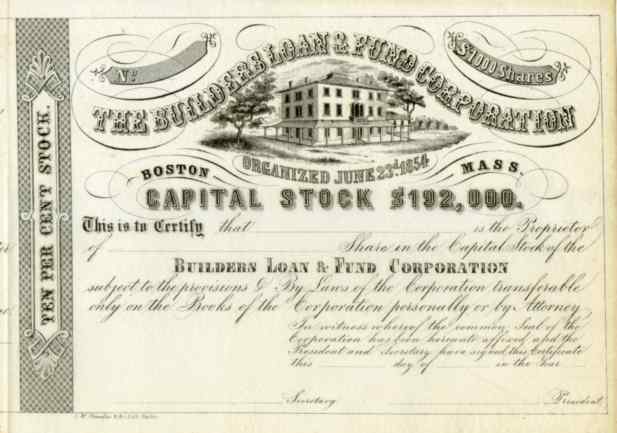 Nº
$1000 Shares
THE BUILDERS LOAN & FUND CORPORATION
ORGANIZED JUNE 23d. 1854
BOSTON MASS.
CAPITAL STOCK $192,000.
This is to Certify that is the Proprietor
of Share in the Capital Stock of the
BUILDERS LOAN & FUND CORPORATION
subject to the provisions & By Laws of the Corporation transferable
only on the Books of the Corporation personally or by Attorney
In witness whereof the common Seal of the
Corporation has been hereunto affixed and the
President and Secretary have signed this Certificate
this day of in the Year
Secretary President
TEN PER CENT STOCK.